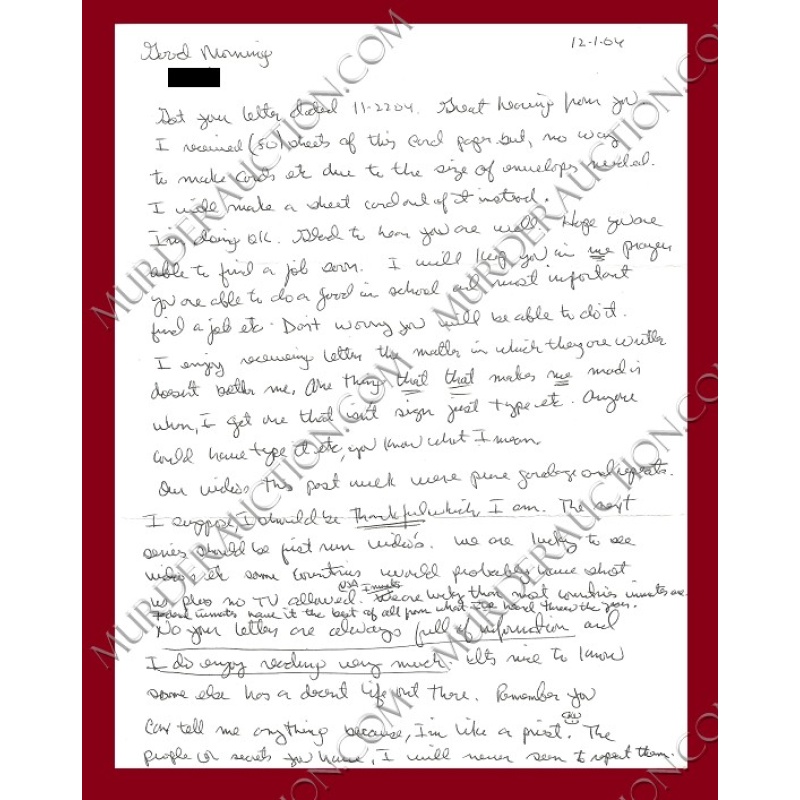 12-1-04
Good Morning
Got your letter dated 11-2204. Great hearing from you
I received (50) sheets of this card paper but, no way
to make cards etc due to the size of envelops needed.
I will make a sheet card out of it instead.
I'm doing OK. Glad to hear you are well. Hope you are
able to find a job soon. I will keep you in me prayer
you are able to do a good in school and most important
find a job etc. Don't worry you will be able to do it.
I enjoy receiving letter the matter in which they are writte
doesn't bother me. One thing that that makes me mad is
when, I get one that isn't sign just type etc. Anyone
could have type it etc, you know what I mean.
Our videos this past week were pure garbage and repeats.
I suppose, I should be thankful which I am. The next
series should be first run video's. We are lucky to see
video's etc some countries would probably have shot
us plus no TV allowed. USA Inmate are lucky than most countries inmates are.
Federal inmates have it the best of all from what I've heard threw the years.
No your letters are always full of information and
I do enjoy reading very much. It's nice to know
some else has a decent life out there. Remember you
can tell me anything because, I'm like a priest. The
people or secrets you have, I will never seen to repeat them.
MURDERAUCTION.COM